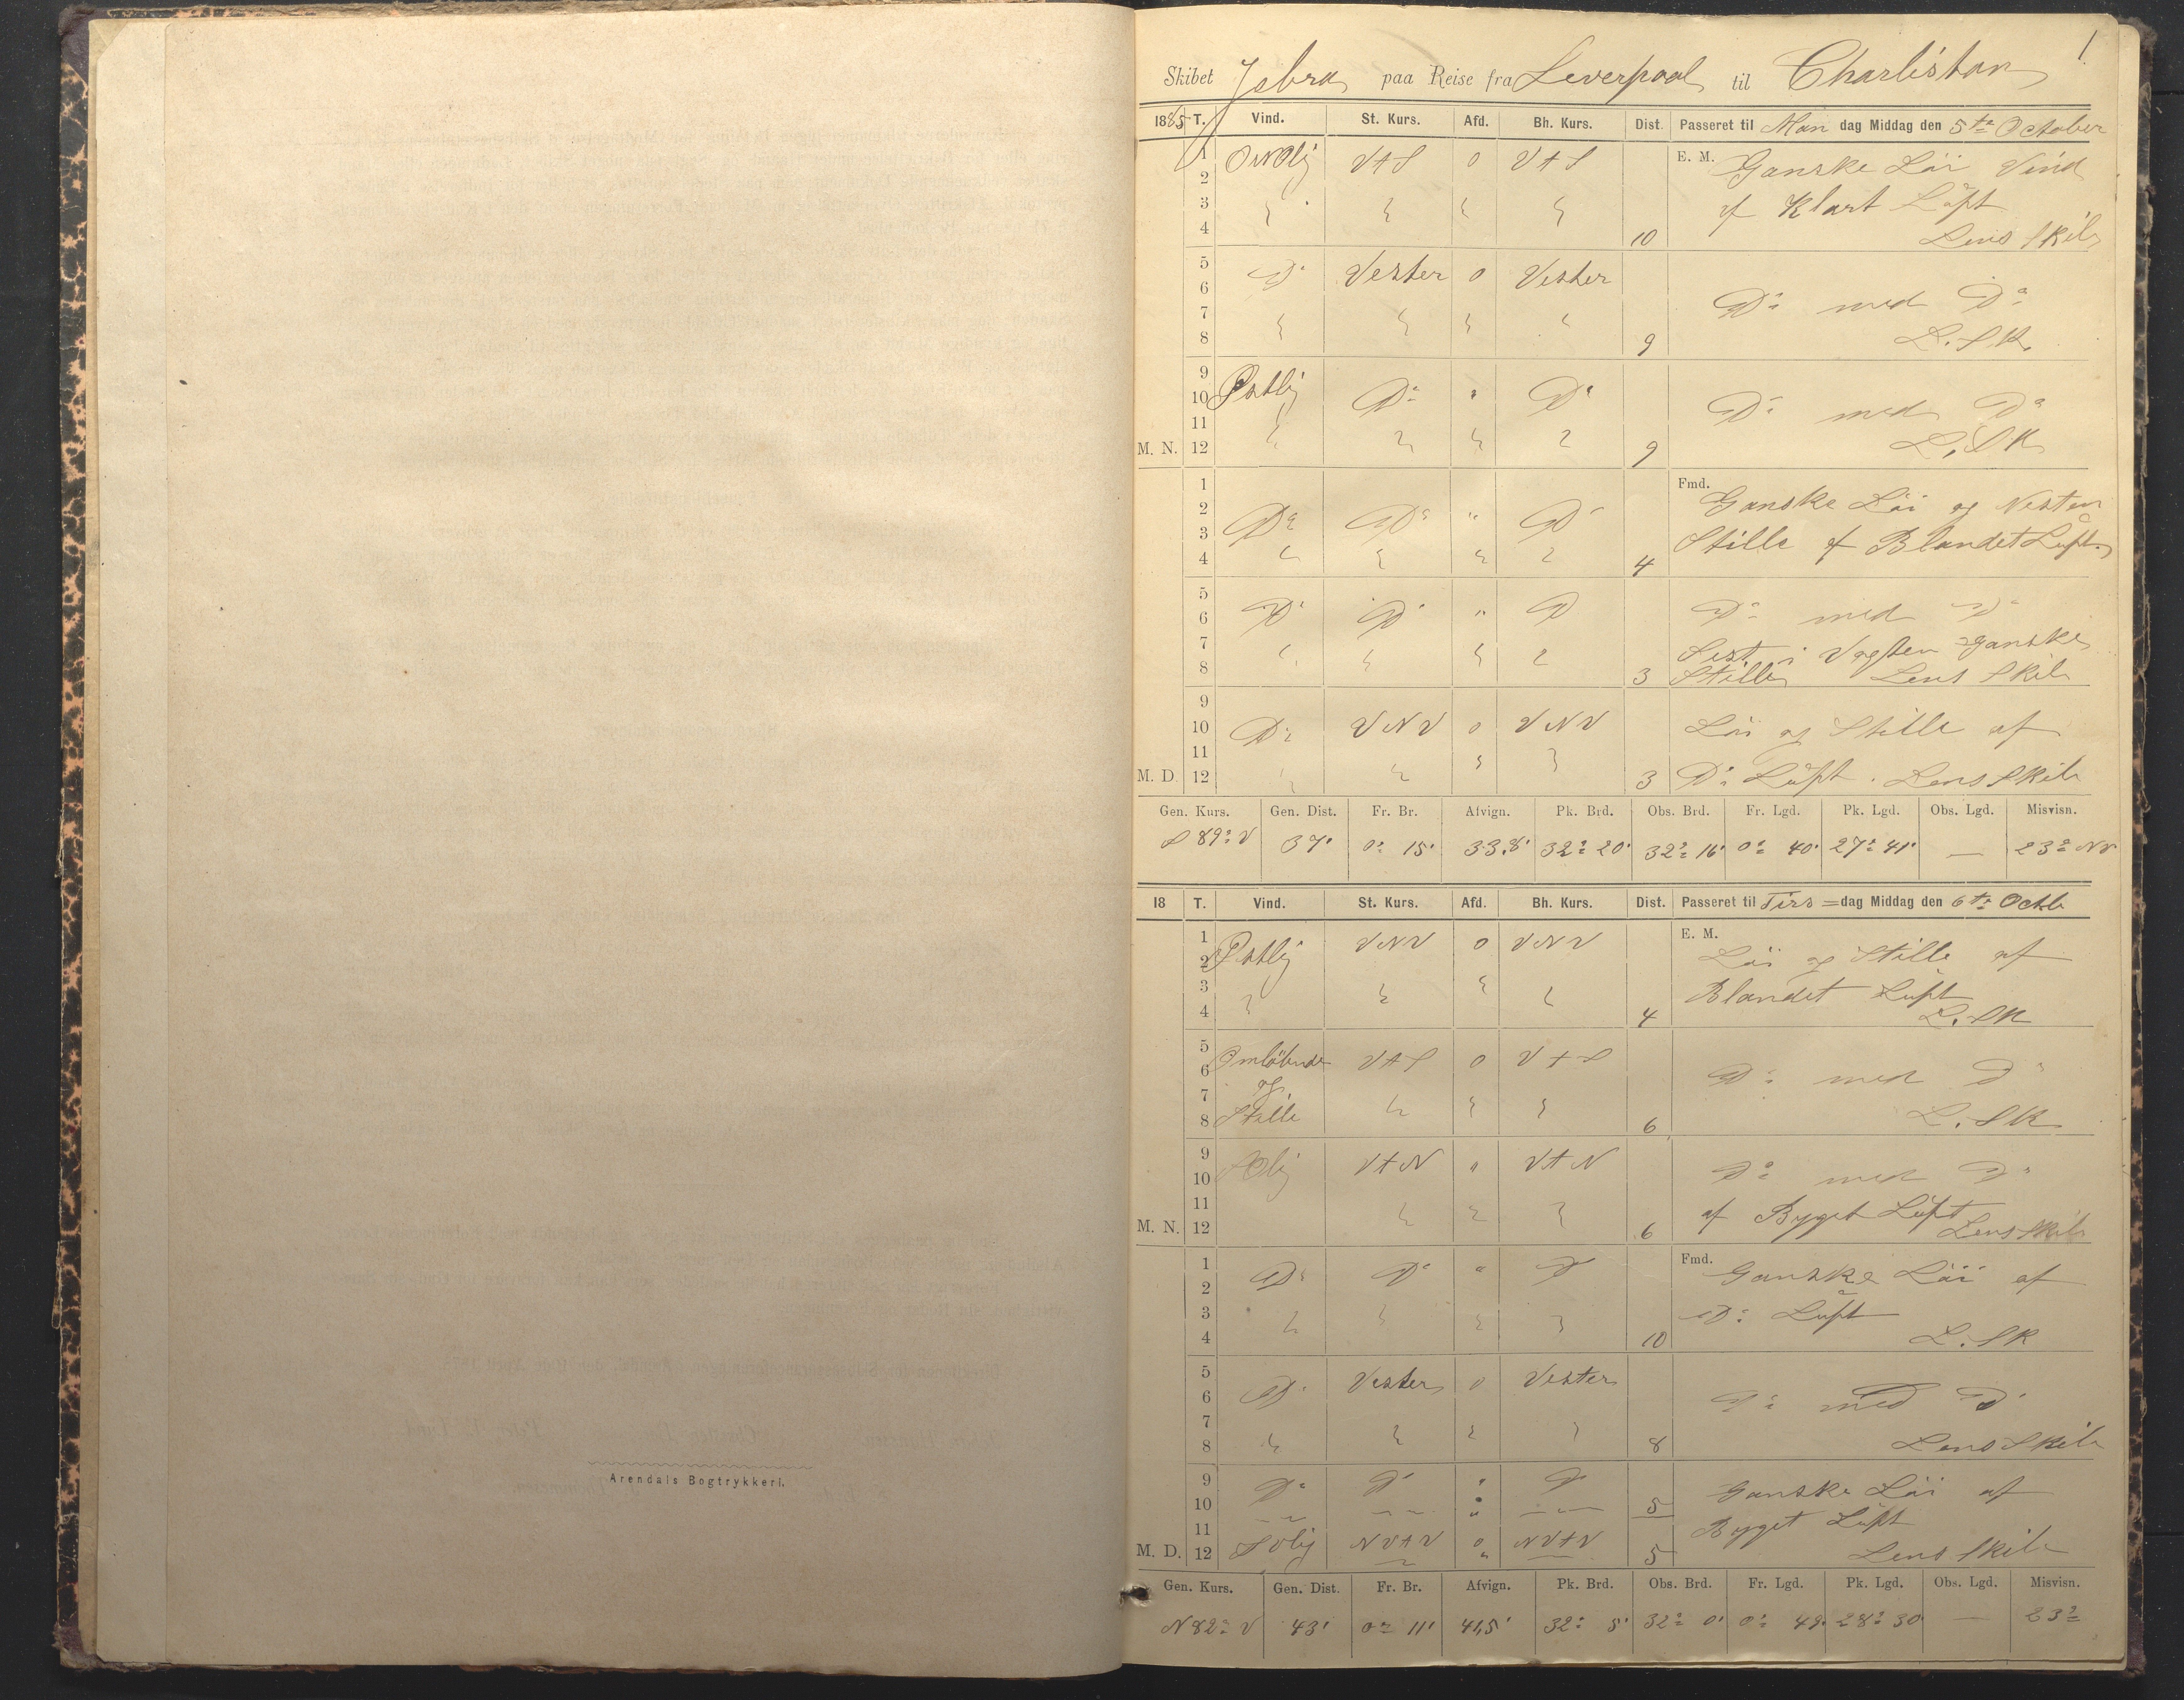 Arendals Bogtrykkeri.
1
Skibet Jsbra paa Reise fra Leverpool til Charlistan
1885 T. Vind. St. Kurs. Afd. Bh. Kurs. Dist. Passeret til Man dag Middag den 5te October
1 2 3 4 V t S 0 V t S 10 E. M. Ganske Löi Vind
af Klart Luft
Lens Skib
5 6 7 8 Do Vester 0 Vester 9 Do med Do
L. SK.
9 10 11 M. N. 12 Østlig Do " Do 9 Do med Do
L. SK
1 2 3 4 Do Do " Do 4 Fmd. Ganske Löi og Nesten
Stille af Blandet Luft
5 6 7 8 Do Do " Do 3 Do med Do
Sist i Vagten ganske
Stille Lens Skib
9 10 11 M. D. 12 Do VNV 0 VNV 3 Löi og Stille af
Do Luft. Lens Skib
Gen. Kurs. Gen. Dist. Fr. Br. Afvign. Pk. Brd. Obs. Brd. Fr. Lgd. Pk. Lgd. Obs. Lgd. Misvisn.
S 89o V 37' 0o 15' 33,8' 32o 20' 32o 16' 0o 40' 27o 41' — 23o NV
18 T. Vind. St. Kurs. Afd. Bh. Kurs. Dist. Passeret til Tirs=dag Middag den 6te Octb
1 2 3 4 Østlig VNV 0 VNV 4 E. M. Löi og Stille af
Blandet Luft
L. SK
5 6 7 8 Omlöbende og Stille V t S 0 V t S 6 Do med Do
L. SK
9 10 11 M. N. 12 V t N " V t N 6 Do med Do
af Byget Luft
Lens Skib
1 2 3 4 Do Do " Do 10 Fmd. Ganske Löi af
Do Luft
L. SK
5 6 7 8 Do Vester 0 Vester 8 Do med Do
Lens Skib
9 10 Do Do " Do 5 Ganske Löi af
11 M. D. 12 SVlig NVtV 0 NVtV 5 Byget Luft
Lens Skib
Gen. Kurs. Gen. Dist. Fr. Br. Afvign. Pk. Brd. Obs. Brd. Fr. Lgd. Pk. Lgd. Obs. Lgd. Misvisn.
N 82o V 43' 0o 11' 41,5' 32o 5' 32o 0' 0o 49' 28o 30' — 23o